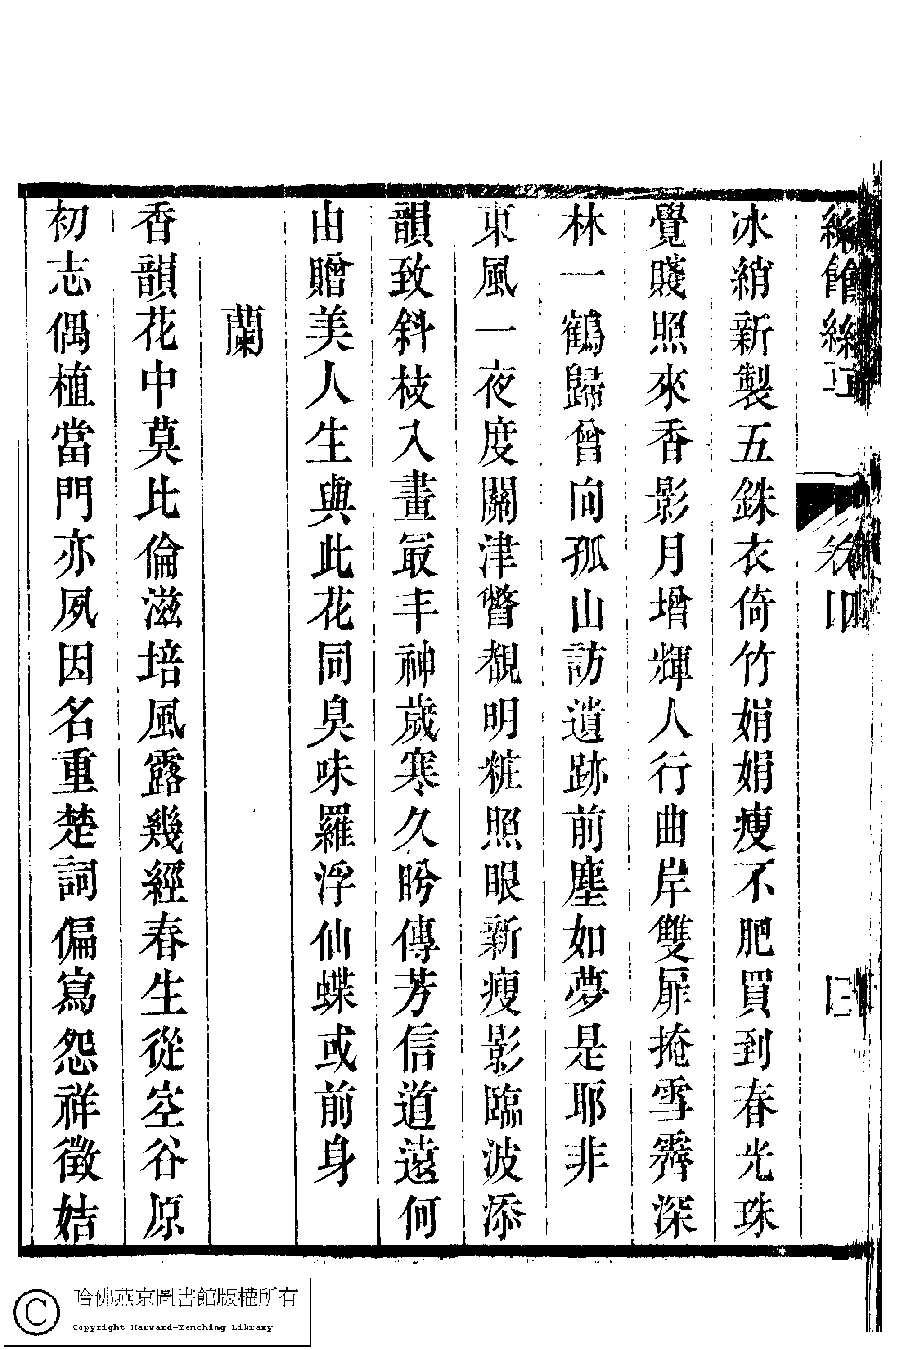 冰綃新製五銖衣倚竹娟娟瘦不肥買到春光珠
覺賤照來香影月增輝人行曲岸雙扉掩雪霽深
林一鶴歸曾向孤山訪遺跡前塵如夢是耶非
東風一夜度關津瞥覩明粧照眼新瘦影臨波添
韻致斜枝入畫最丰神歲寒久盻傳芳信道遠何
由贈美人生與此花同臭味羅浮仙蝶或前身
蘭
香韻花中莫比倫滋培風露幾經春生從空谷原
初志偶植當門亦夙因名重楚詞偏寫怨祥徵姞
哈佛燕京圖書館版權所有
Copyright Harvard-Yenching Library